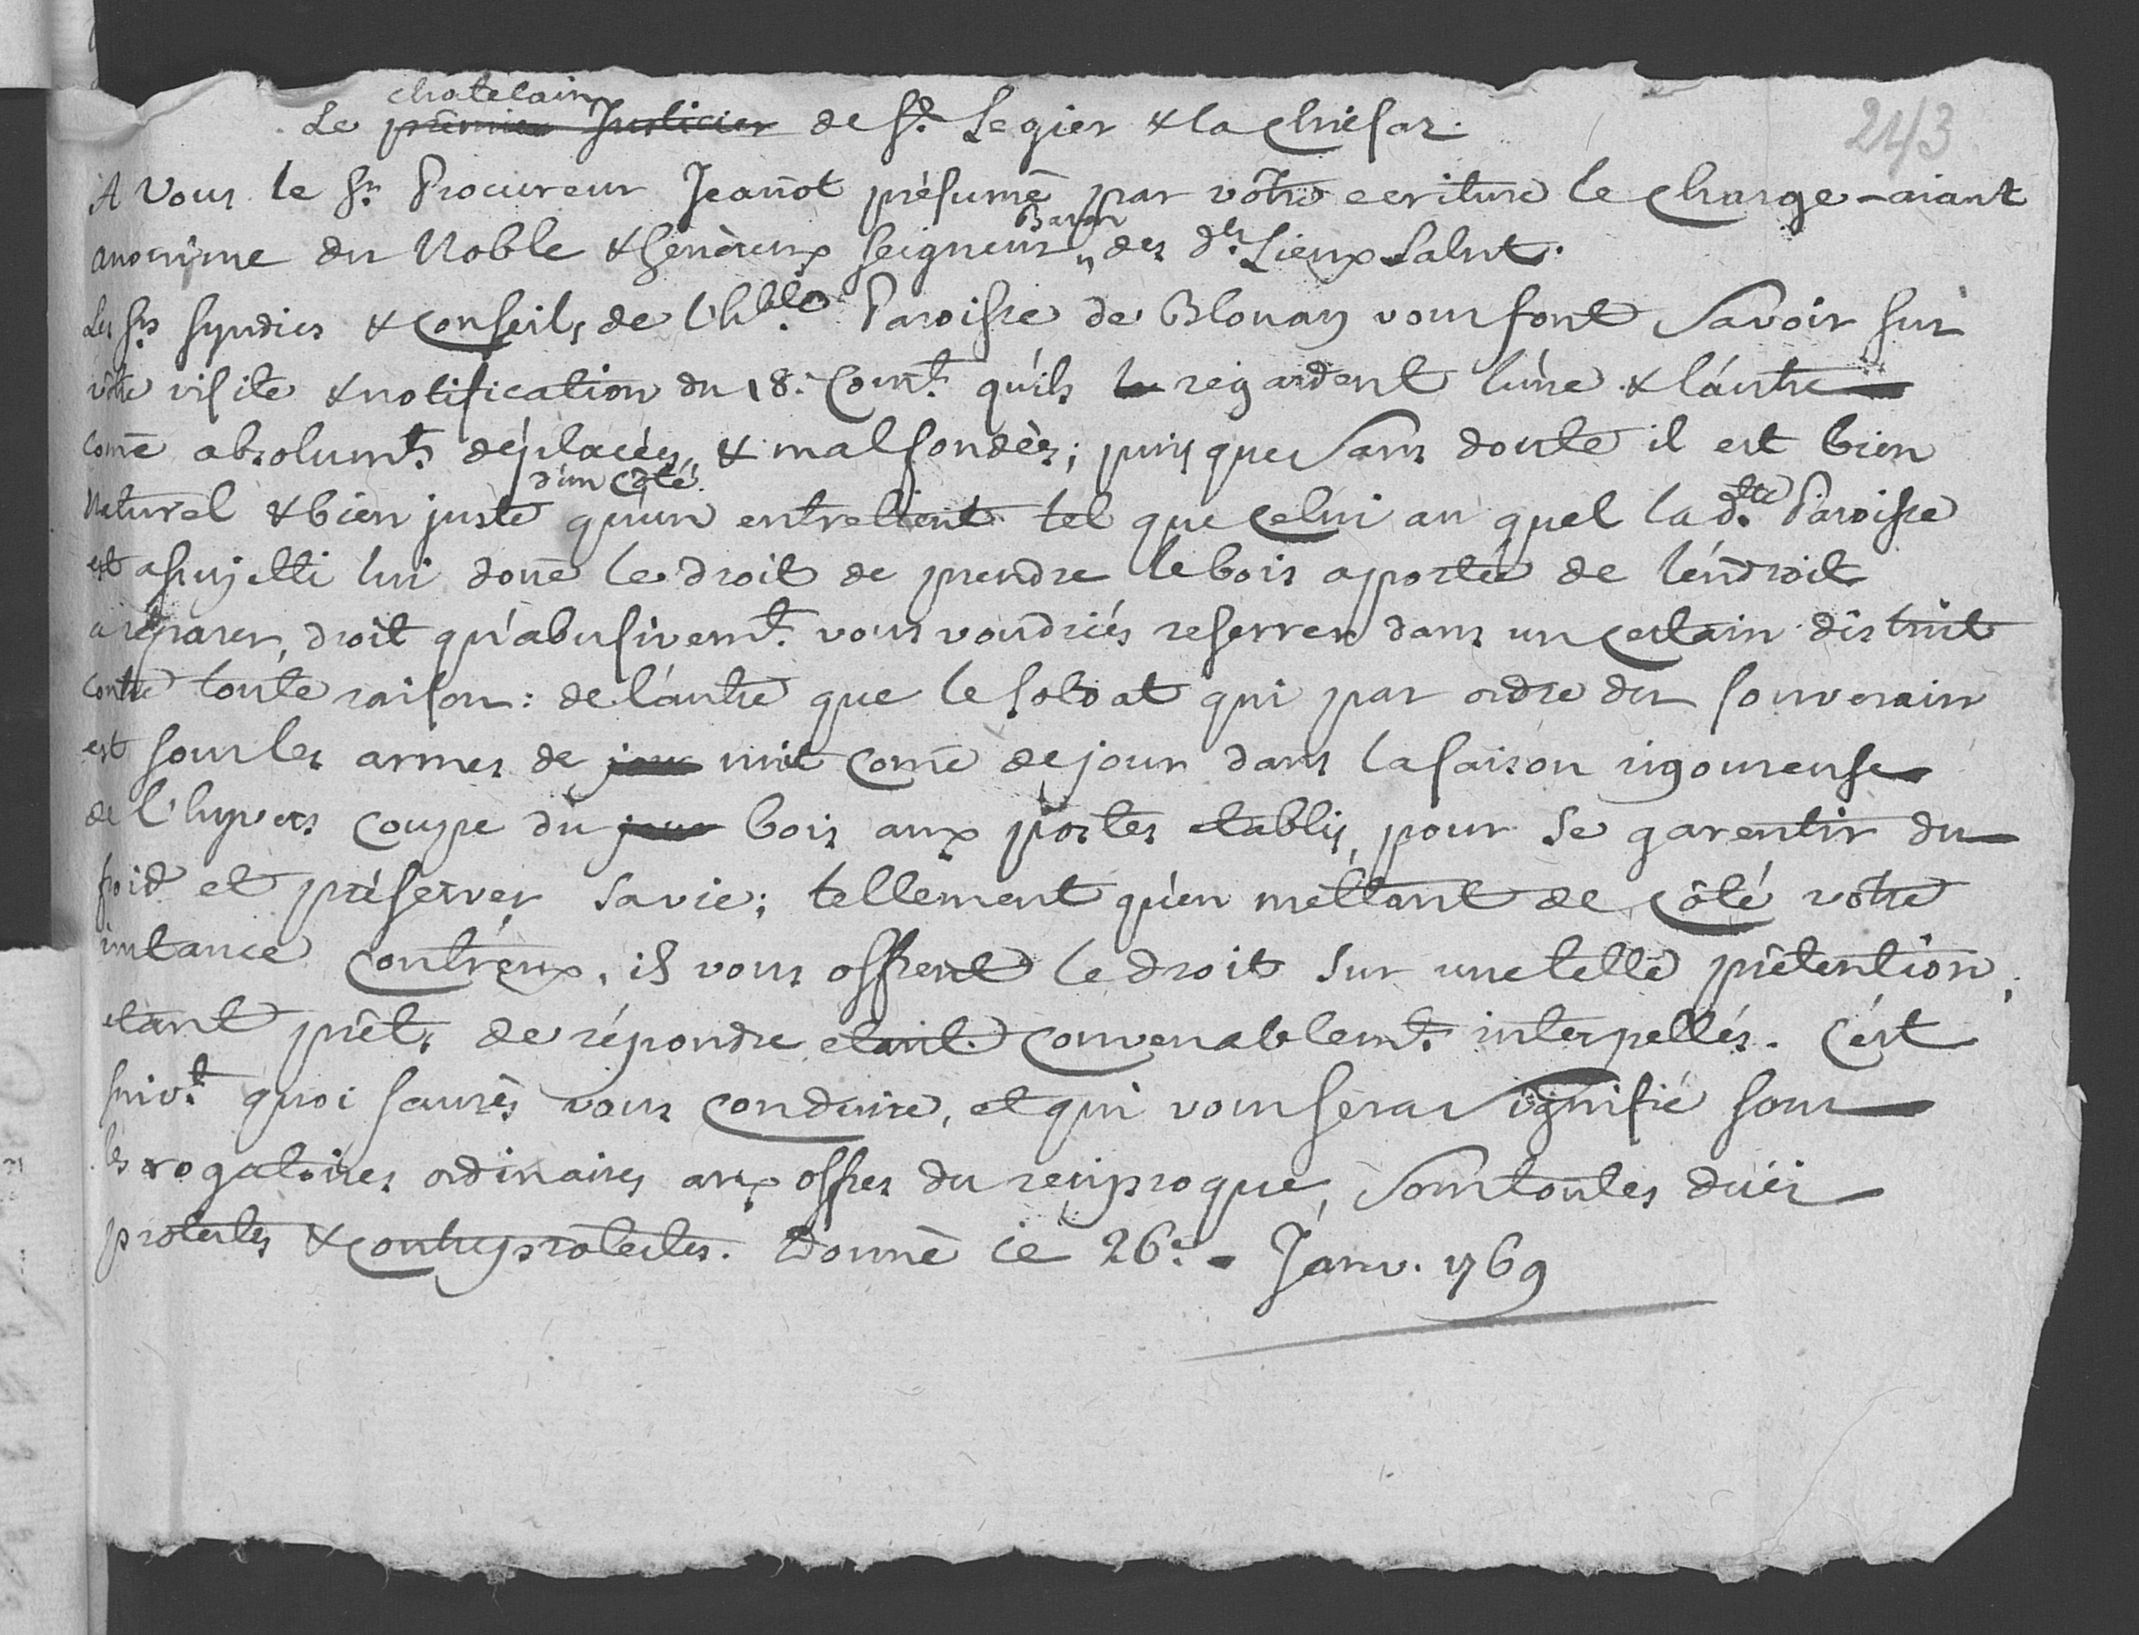 243
chatelain
Le premier Justicier de St. Legier & la Chiesaz.
A Vous le Sr. Procureur Jeañot présumé par vôtre ecriture le charge-aiant
Baron
anonime du Noble & Genèreux Seigneur " des dts. Lieux Salut.
Les Srs Syndics & Conseils de l'hble. Paroisse de Blonay vous font Savoir sur
vôtre visite & notification du 18. Court. qu'ils la regardent l'une & l'autre
come absolumt. déplacées & mal fondèes; puis que Sans doute il est bien
d'un côté
Naturel & bien juste qu'un entretient tel que celui au quel la dte. Paroisse
est assujetti lui done le droit de prendre le bois a portée de l'endroit
a reparer, droit qu'abusivemt. vous voudriés resserrer dans un certain district
contre toute raison: de l'autre que le soldat qui par ordre du souverain
est sous les armes de jour nuit come de jour dans la saison rigoureuse
de l'hyvers coupe du jour bois aux postes etablis, pour se garentir du
froid et préserver sa vie; tellement qu'en mettant de côté votre
instance contr'eux, ils vous offrent le droit sur une telle prétention,
etant prêts de répondre etant convenablemt. interpellés. C'est
suivt. quoi saurés vous conduire, et qui vous sera Signifié sous
les rogatoires ordinaires aux offres du reciproque, Sous toutes dües
protestes & contreprotestes. Donné ce 26e. Janv. 1769